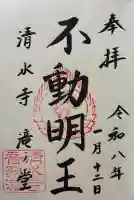 奉拝
令和八年
一月十二日
不動明王
清水寺
滝の堂